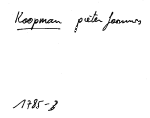 Koopman pieter Joannes
1785-8